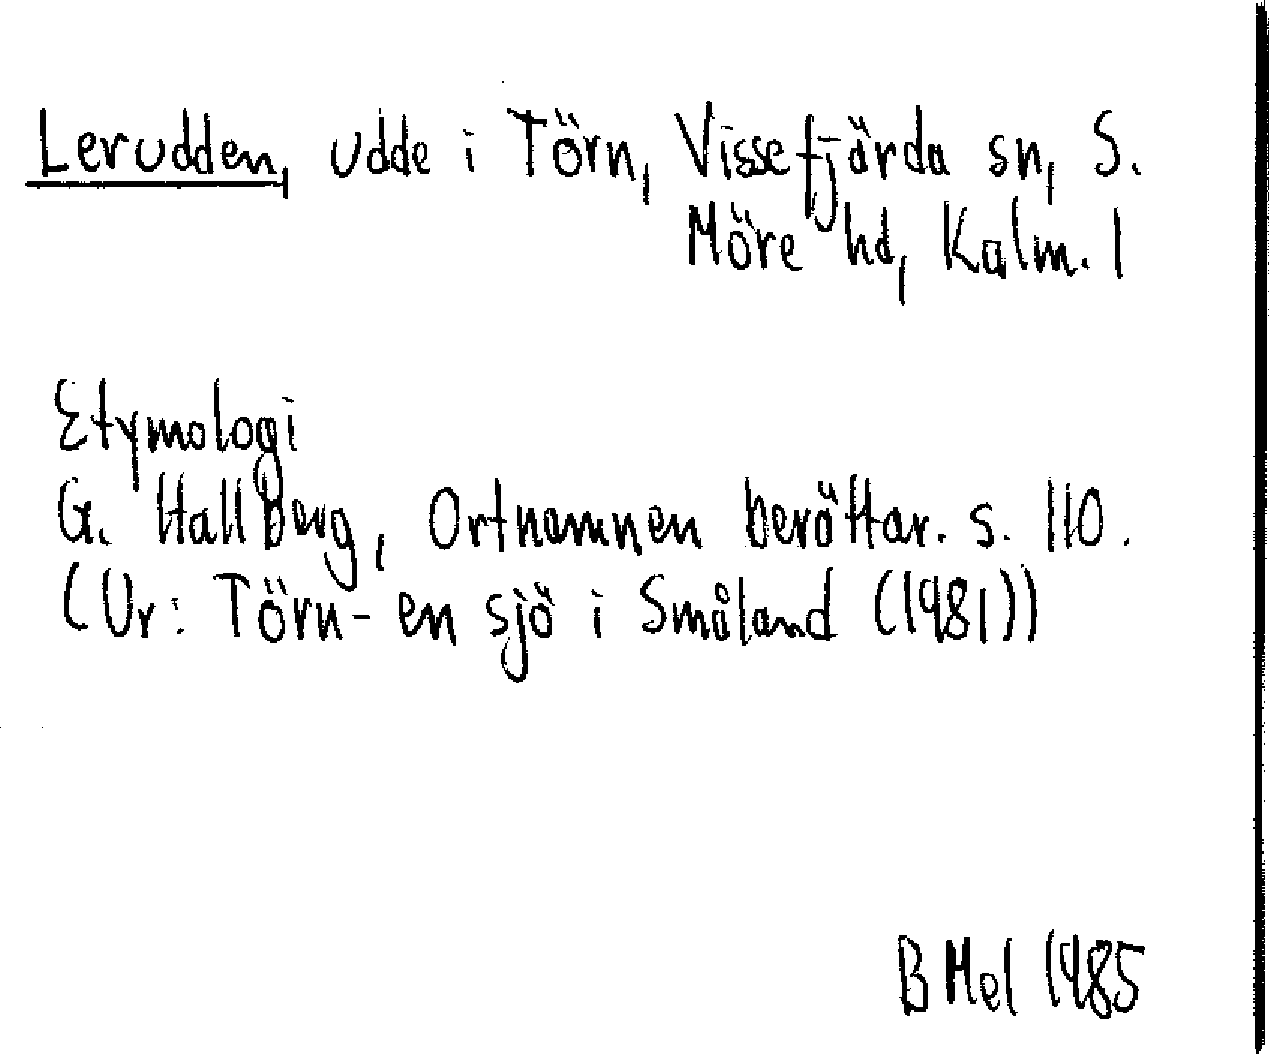 Lerudden, udde i Törn, Vissefjärda sn, S.
Möre hd, Kalm. l
Etymologi
G. Hallberg, Ortnamnen berättar. s. 110.
(Ur: Törn - en sjö i Småland (1981))
B Mel 1985